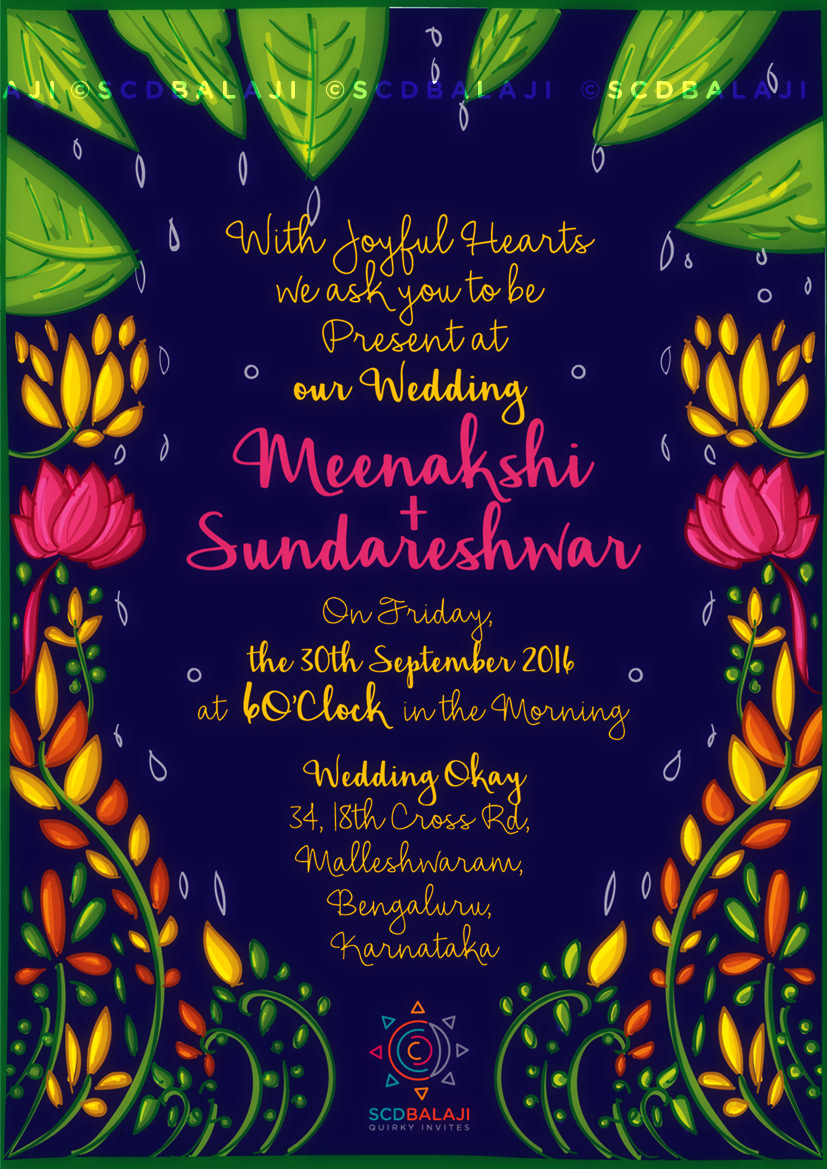 AJI ©SCDBALAJI ©SCDBALAJI ©SCDBALAJI
With Joyful Hearts
we ask you to be
Present at
our Wedding
Meenakshi
+
Sundareshwar
On Friday,
the 30th September 2016
at 6O'Clock in the Morning
Wedding Okay
34, 18th Cross Rd,
Malleshwaram,
Bengaluru,
Karnataka
C
SCDBALAJI
QUIRKY INVITES